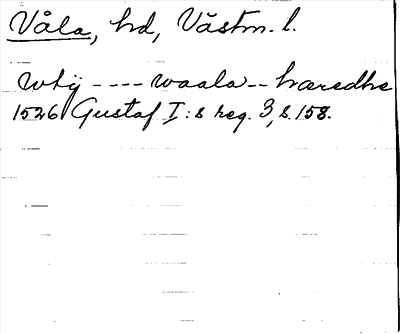 Våla, hd, Västm. l.
wtÿ ---- waala -- haredhe
1526 Gustaf I:s reg. 3, s. 158.